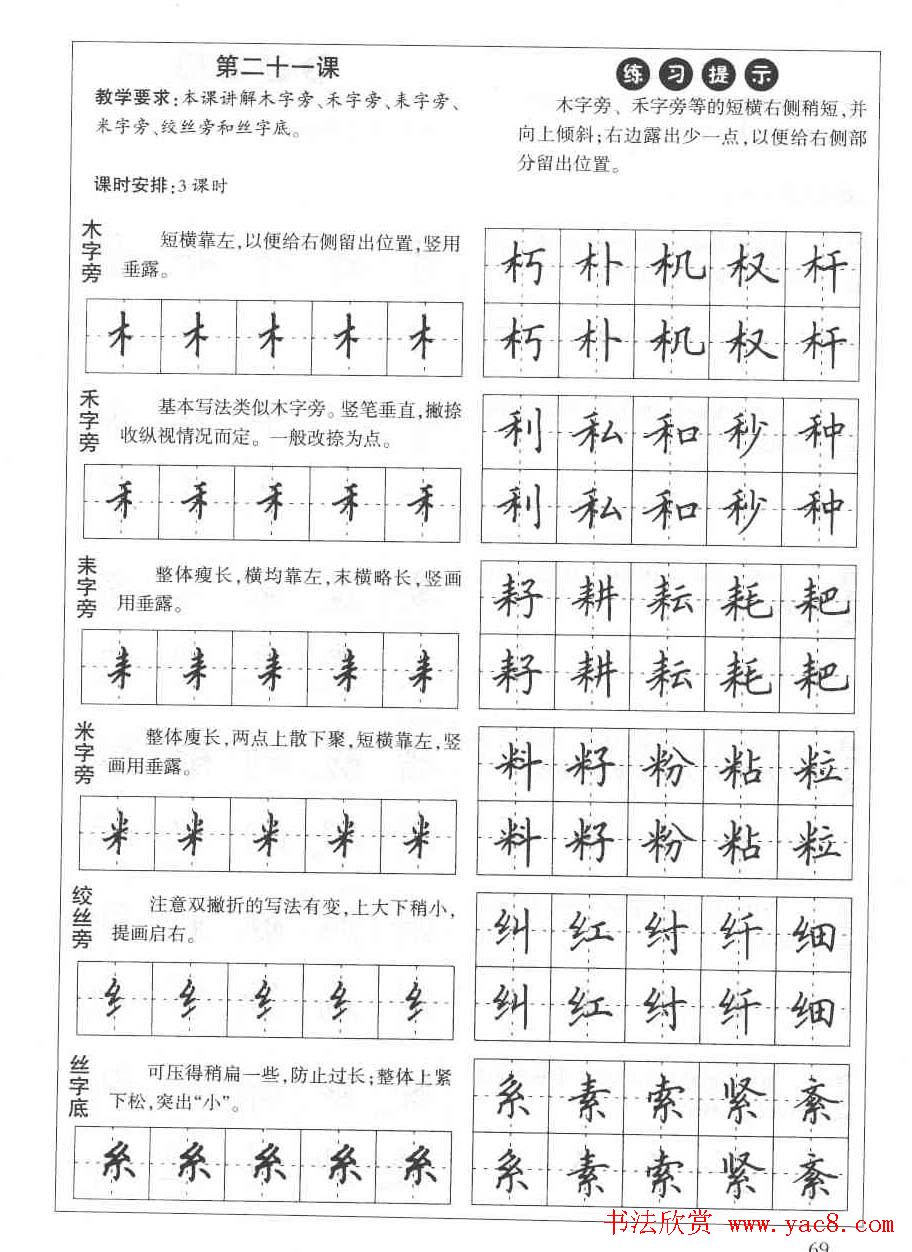 第二十一课
教学要求:本课讲解木字旁、禾字旁、耒字旁、
米字旁、绞丝旁和丝字底。
课时安排:3课时
练习提示
木字旁、禾字旁等的短横右侧稍短,并
向上倾斜;右边露出少一点,以便给右侧部
分留出位置。
木字旁
短横靠左,以便给右侧留出位置,竖用
垂露。
木木木木木
朽朴机权杆
朽朴机权杆
禾字旁
基本写法类似木字旁。竖笔垂直,撇捺
收纵视情况而定。一般改捺为点。
禾禾禾禾禾
利私和秒种
利私和秒种
耒字旁
整体瘦长,横均靠左,末横略长,竖画
用垂露。
耒耒耒耒耒
耔耕耘耗耙
耔耕耘耗耙
米字旁
整体廋长,两点上散下聚,短横靠左,竖
画用垂露。
米米米米米
料籽粉粘粒
料籽粉粘粒
绞丝旁
注意双撇折的写法有变,上大下稍小,
提画启右。
纟纟纟纟纟
纠红纣纤细
纠红纣纤细
丝字底
可压得稍扁一些,防止过长;整体上紧
下松,突出“小”。
糸糸糸糸糸
系素索紧紊
系素索紧紊
书法欣赏 www.yac8.com
69